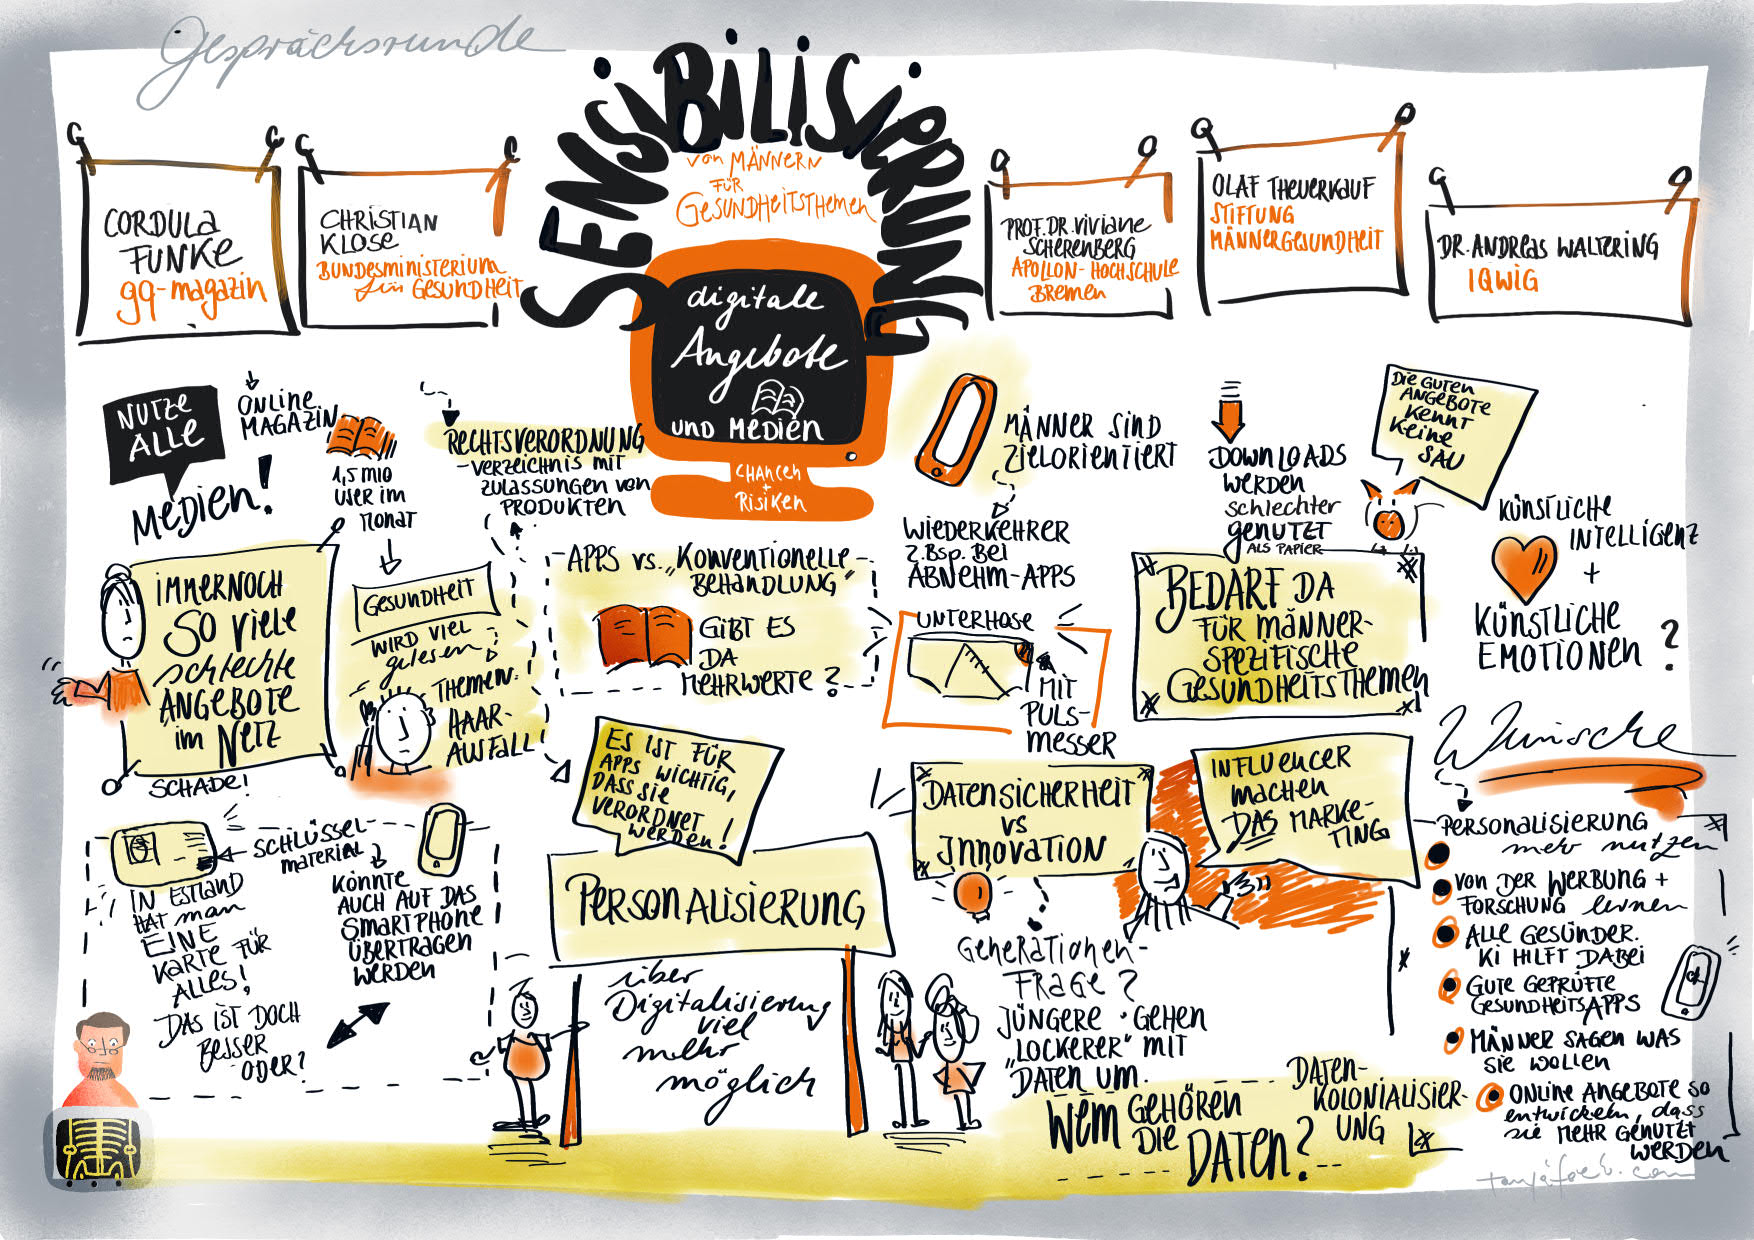 Gesprächsrunde
SENSIBILISIERUNG
von MÄNNERN
FÜR
GESUNDHEITSTHEMEN
digitale
Angebote
UND MEDIEN
CHANCEN
+
RISIKEN
CORDULA
FUNKE
gq-magazin
CHRISTIAN
KLOSE
BUNDESMINISTERIUM
für GESUNDHEIT
PROF. DR. VIVIANE
SCHERENBERG
APOLLON-HOCHSCHULE
BREMEN
OLAF THEUERKAUF
STIFTUNG
MÄNNERGESUNDHEIT
DR. ANDREAS WALTERING
IQWIG
NUTZE
ALLE
MEDIEN!
ONLINE
MAGAZIN
1,5 MIO
USER IM
MONAT
GESUNDHEIT
WIRD VIEL
gelesen
THEMEN:
HAAR-
AUSFALL
RECHTSVERORDNUNG
-VERZEICHNIS MIT
ZULASSUNGEN VON
PRODUKTEN
IMMERNOCH
SO VIELE
schlechte
ANGEBOTE
im NETZ
SCHADE!
APPS vs. „KONVENTIONELLE
BEHANDLUNG"
GIBT ES
DA
MEHRWERTE?
MÄNNER SIND
ZIELORIENTIERT
WIEDERKEHRER
z.Bsp. BEI
ABNEHM-APPS
UNTERHOSE
MIT
PULS-
MESSER
DOWNLOADS
WERDEN
schlechter
GENUTZT
ALS PAPIER
DIE GUTEN
ANGEBOTE
KENNT
KEINE
SAU
BEDARF DA
FÜR MÄNNER-
SPEZIFISCHE
GESUNDHEITSTHEMEN
KÜNSTLICHE
INTELLIGENZ
+
KÜNSTLICHE
EMOTIONEN?
SCHLÜSSEL-
material
IN ESTLAND
HAT man
EINE
KARTE FÜR
ALLES!
DAS IST DOCH
BESSER
ODER?
KÖNNTE
AUCH AUF DAS
SMARTPHONE
ÜBERTRAGEN
WERDEN
ES IST FÜR
APPS WICHTIG,
DASS SIE
VERORDNET
WERDEN!
PERSONALISIERUNG
über
Digitalisierung
viel
mehr
möglich
DATENSICHERHEIT
vs
INNOVATION
GENERATIONEN-
FRAGE?
JÜNGERE GEHEN
„LOCKERER" MIT
DATEN UM.
INFLUENCER
machen
DAS MARKE-
TING
WEM GEHÖREN
DIE DATEN?
DATEN-
KOLONIALISIER-
UNG
Wünsche
PERSONALISIERUNG
mehr nutzen
VON DER WERBUNG +
FORSCHUNG lernen
ALLE GESÜNDER.
KI HILFT DABEI
GUTE GEPRÜFTE
GESUNDHEITSAPPS
MÄNNER SAGEN WAS
SIE WOLLEN
ONLINE ANGEBOTE SO
entwickeln, dass
sie MEHR GENUTZT
WERDEN